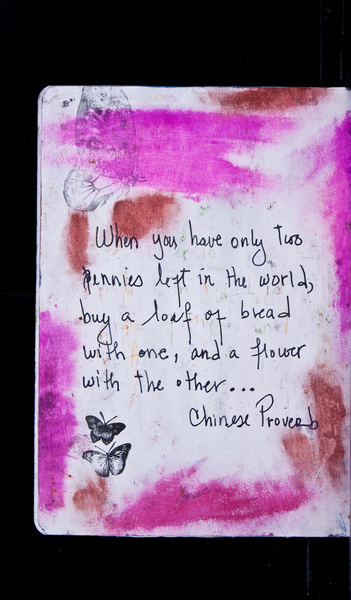 When you have only two
pennies left in the world,
buy a loaf of bread
with one, and a flower
with the other...
Chinese Proverb